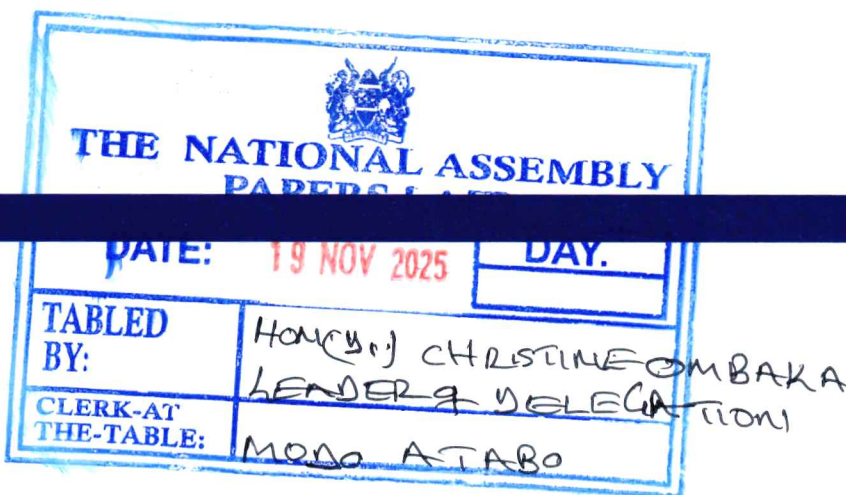 THE NATIONAL ASSEMBLY
PAPERS LAID
DATE: 19 NOV 2025 DAY.
TABLED BY: HON(Dr.) CHRISTINE OMBAKA
LEADER of DELEGATION
CLERK-AT THE-TABLE: MODO ATABO